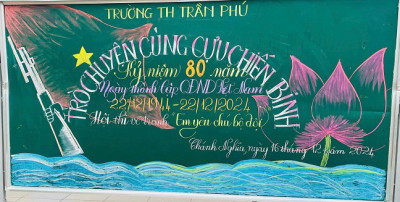 TRƯỜNG TH TRẦN PHÚ
TRÒ CHUYỆN CÙNG CỰU CHIẾN BINH
Kỷ niệm 80 năm
Ngày thành lập QĐND Việt Nam
22/12/1944 - 22/12/2024
Hội thi vẽ tranh "Em yêu chú bộ đội"
Chánh Nghĩa, ngày 16 tháng 12 năm 2024